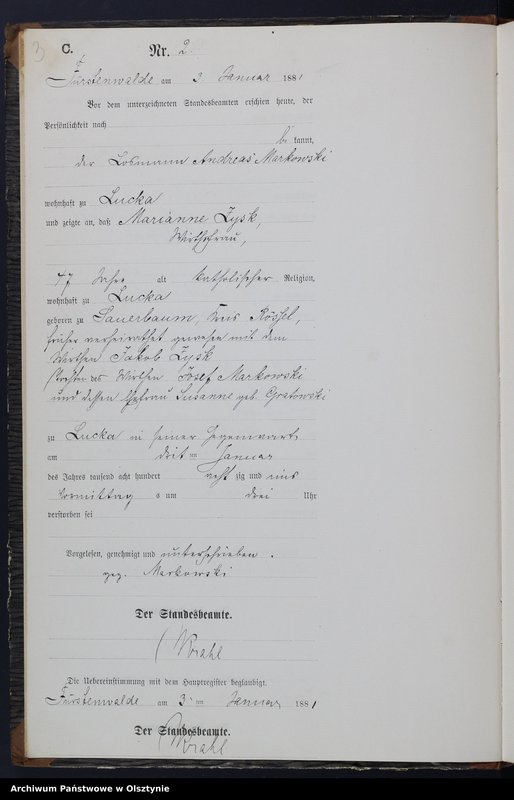 3
C. Nr. 2.
Fürstenwalde am 3 Januar 1881
Vor dem unterzeichneten Standesbeamten erschien heute, der
Persönlichkeit nach
be kannt,
der Losmann Andreas Markowski
wohnhaft zu Lucka
und zeigte an, daß Marianne Zysk,
Wirthsfrau,
47 Jahre alt katholischer Religion,
wohnhaft zu Lucka
geboren zu Sauerbaum, Kreis Rössel,
früher verheirathet gewesen mit dem
Wirthen Jakob Zysk
Tochter des Wirthen Josef Markowski
und dessen Ehefrau Susanne geb. Grabowski
zu Lucka in seiner Gegenwart
am drit ten Januar
des Jahres tausend acht hundert acht zig und eins
Vormittag s um drei Uhr
verstorben sei
Vorgelesen, genehmigt und unterschrieben.
gez. Markowski
Der Standesbeamte.
Krahl
Die Uebereinstimmung mit dem Hauptregister beglaubigt.
Fürstenwalde am 3 ten Januar 1881
Der Standesbeamte.
Krahl
Archiwum Państwowe w Olsztynie